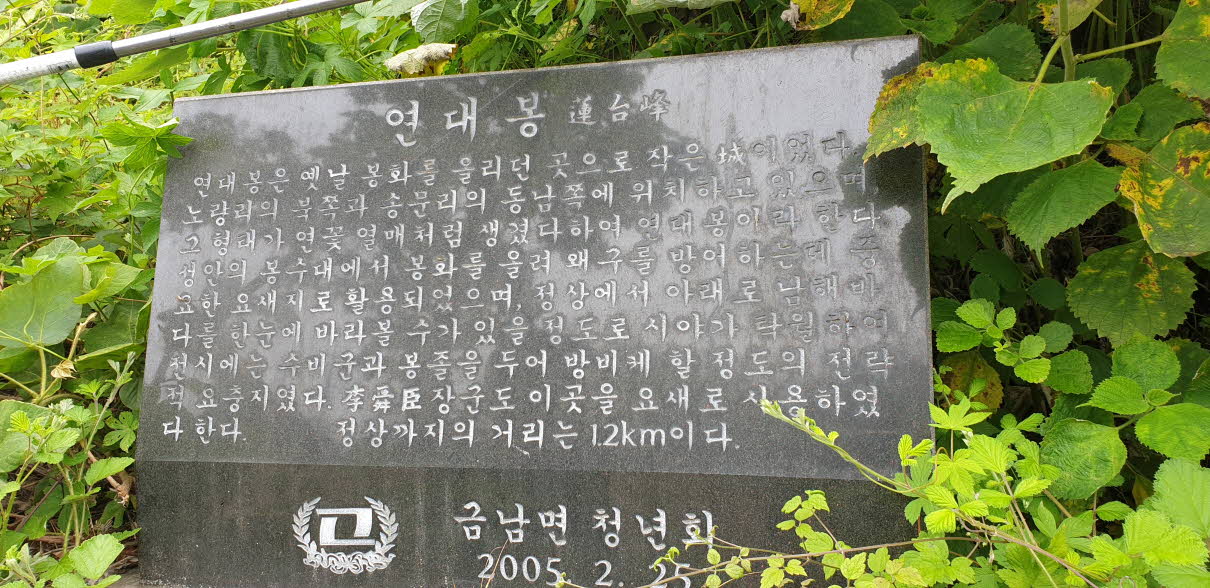 연대봉 蓮台峰
연대봉은 옛날 봉화를 올리던 곳으로 작은 城이었다
노량리의 북쪽과 송문리의 동남쪽에 위치하고 있으며
그 형태가 연꽃 열매처럼 생겼다하여 연대봉이라 한다
성안의 봉수대에서 봉화를 올려 왜구를 방어하는데 중
요한 요새지로 활용되었으며, 정상에서 아래로 남해바
다를 한눈에 바라볼 수가 있을 정도로 시야가 탁월하여
전시에는 수비군과 봉졸을 두어 방비케 할 정도의 전략
적 요충지였다. 李舜臣장군도 이곳을 요새로 사용하였
다 한다. 정상까지의 거리는 1.2km이다.
금남면 청년회
2005. 2. 25